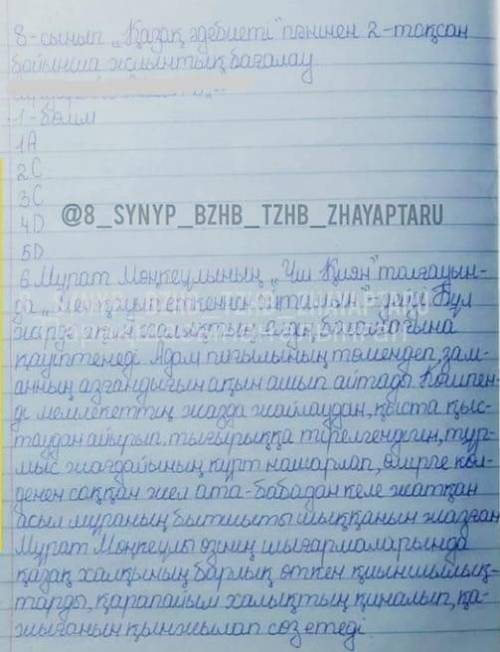 8-сынып „Қазақ әдебиеті" пәнінен 2-тоқсан
бойынша жиынтық бағалау
1-бөлім
1A
2C
3C
@8_SYNYP_BZHB_TZHB_ZHAYAPTARU
4D
5D
6 Мұрат Мөңкеұлының „Үш Қиян" толғауын-
да „Мен қауіп еткеннен айтамын" дейді Бұл
жерде ақын халықтың алдағы болашағына
қауіптенеді Адам пиғылының төмендеп, зам-
анның азғандығын ақын ашып айтады Көшпен-
ді мемлекеттің жазда жайлаудан, қыста қыс-
таудан айырып, тығырыққа тірелгендігін, тұр-
мыс жағдайының күрт нашарлап, өмірге көл-
денең соққан жел ата-бабадан келе жатқан
асыл мұраның бытшыты шыққанын жазған
Мұрат Мөңкеұлы өзінің шығармаларында
қазақ халқының барлық өткен қиыншылық-
тарды, қарапайым халықтың қиналып, қа-
жығанын қынжылап сөз етеді